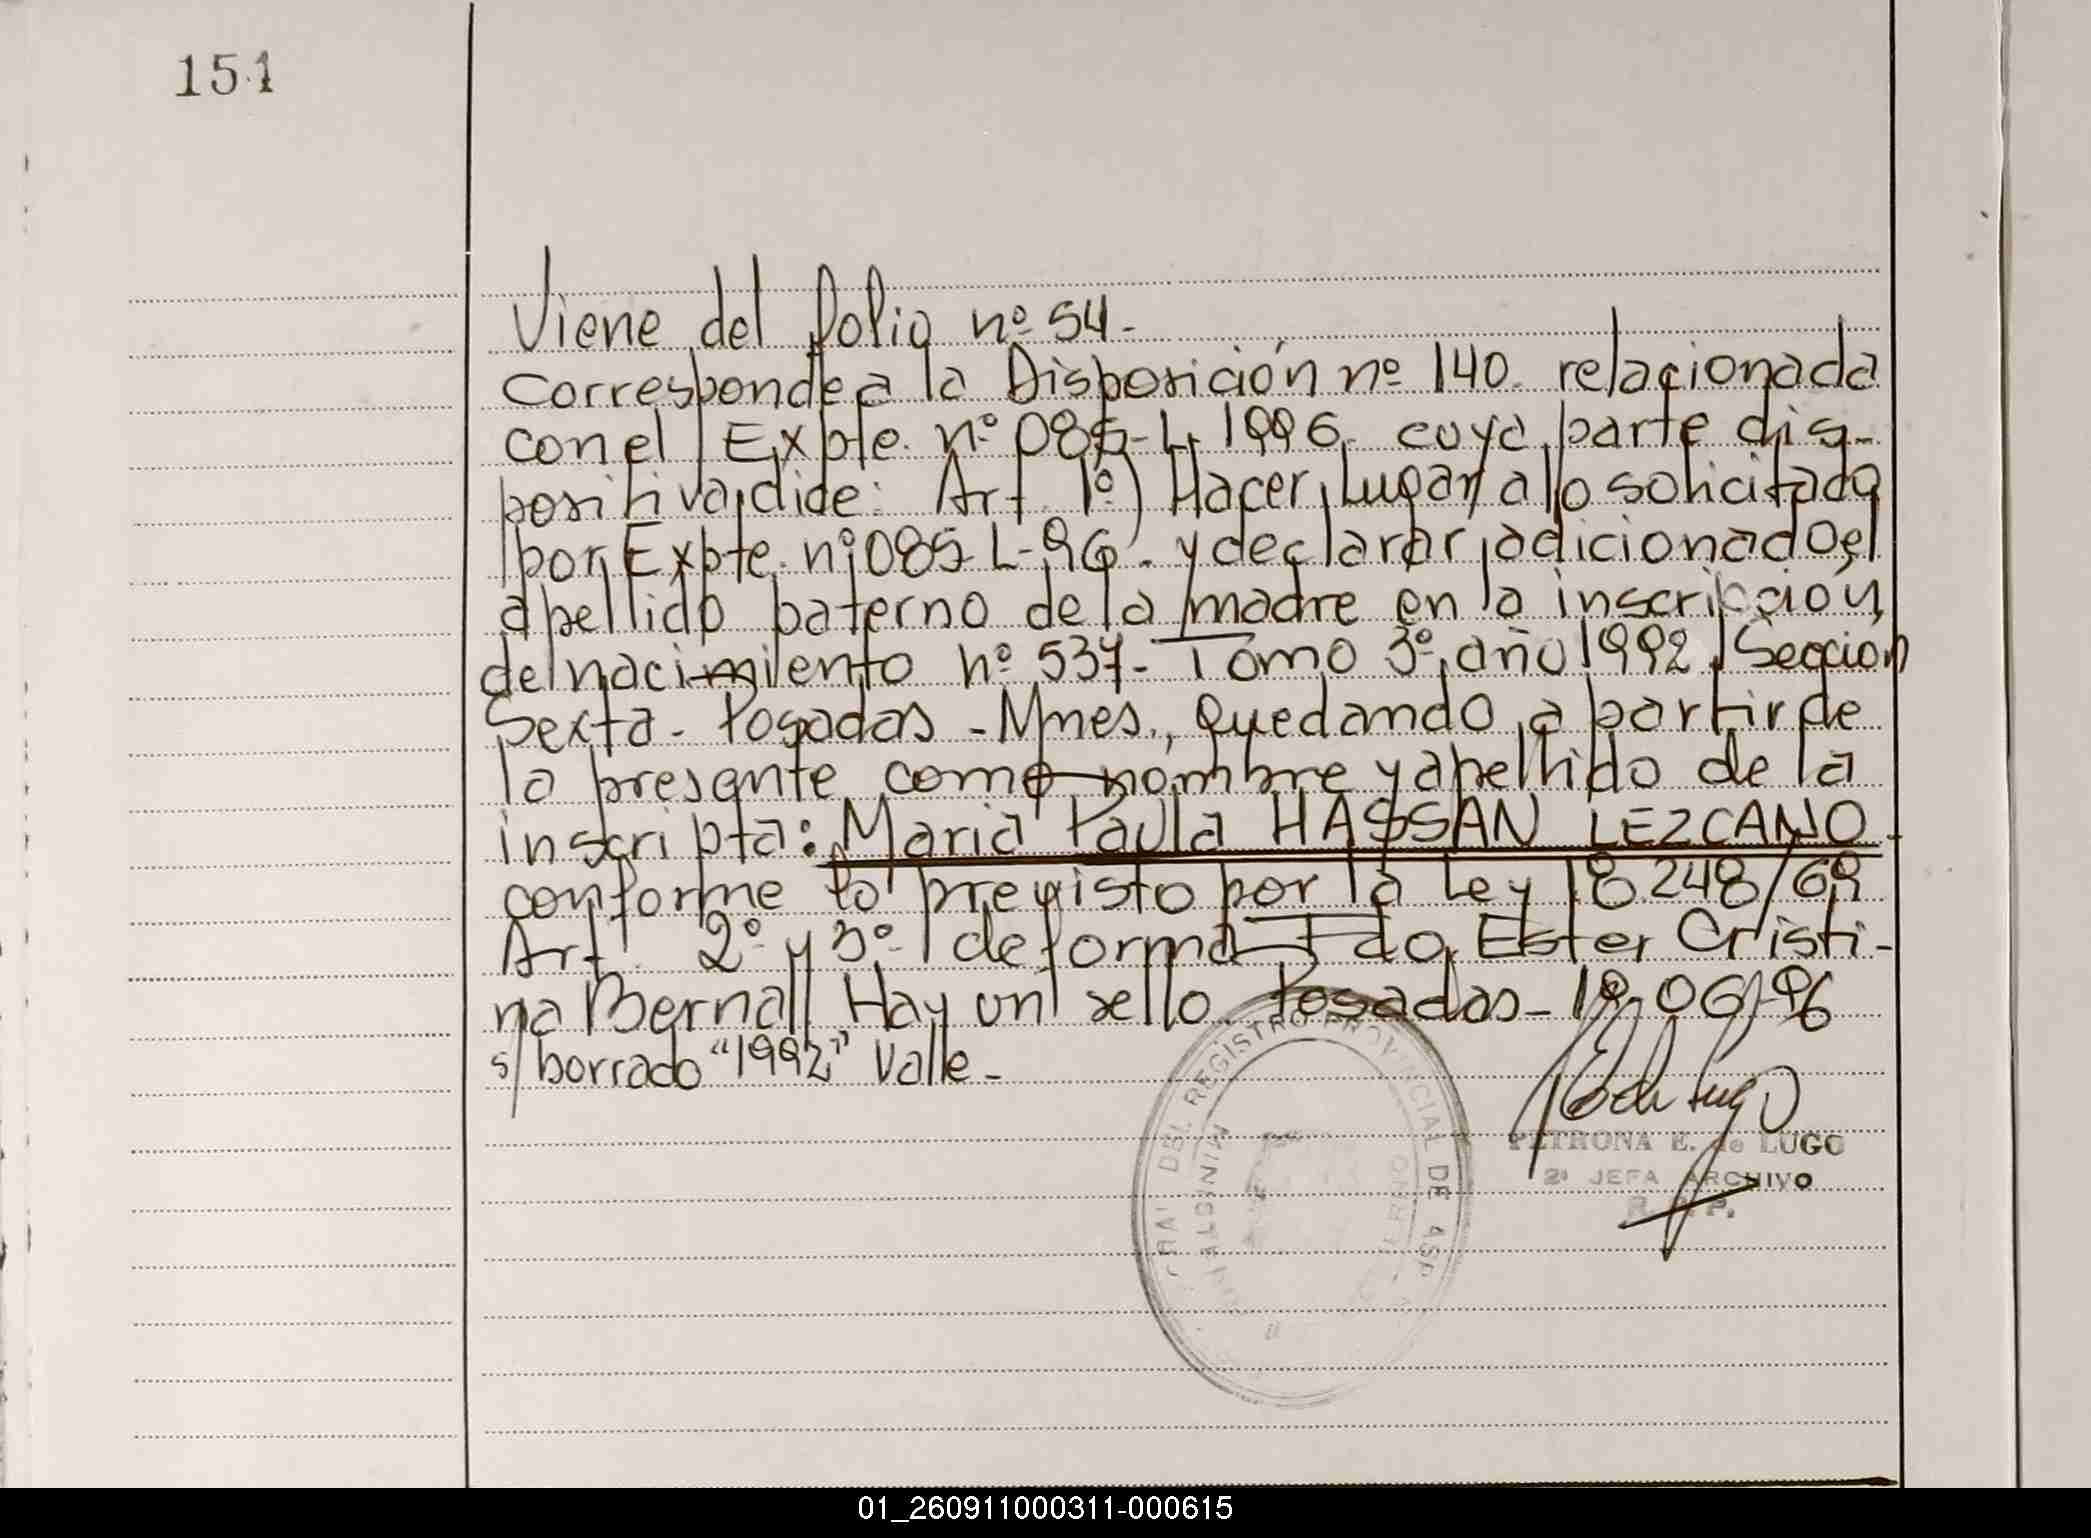 151
Viene del folio nº 54-
Corresponde a la Disposición nº 140. relacionada
con el Expte. nº 085-L-1996. cuya parte dis-
positiva, dide: Art. 1º) Hacer Lugar a lo solicitado
por Expte. nº 085-L-96. y declarar adicionado, el
apellido paterno de la madre en la inscripción
del nacimiento nº 537- Tomo 3º, año 1992, Sección
Sexta- Posadas - Mnes., Quedando a partir de
la presente como nombre y apellido de la
inscripta: Maria Paula HASSAN LEZCANO-
conforme lo previsto por la Ley 18.248/69
Art. 2º y 3º- de forma Fdo. Ester Cristi-
na Bernal Hay un sello. Posadas- 19-06-96
s/ borrado "1992" Valle-
PETRONA E. de LUGO
2ª JEFA ARCHIVO
R. P. P.
GRAL DEL REGISTRO PROVINCIAL DE
01_260911000311-000615